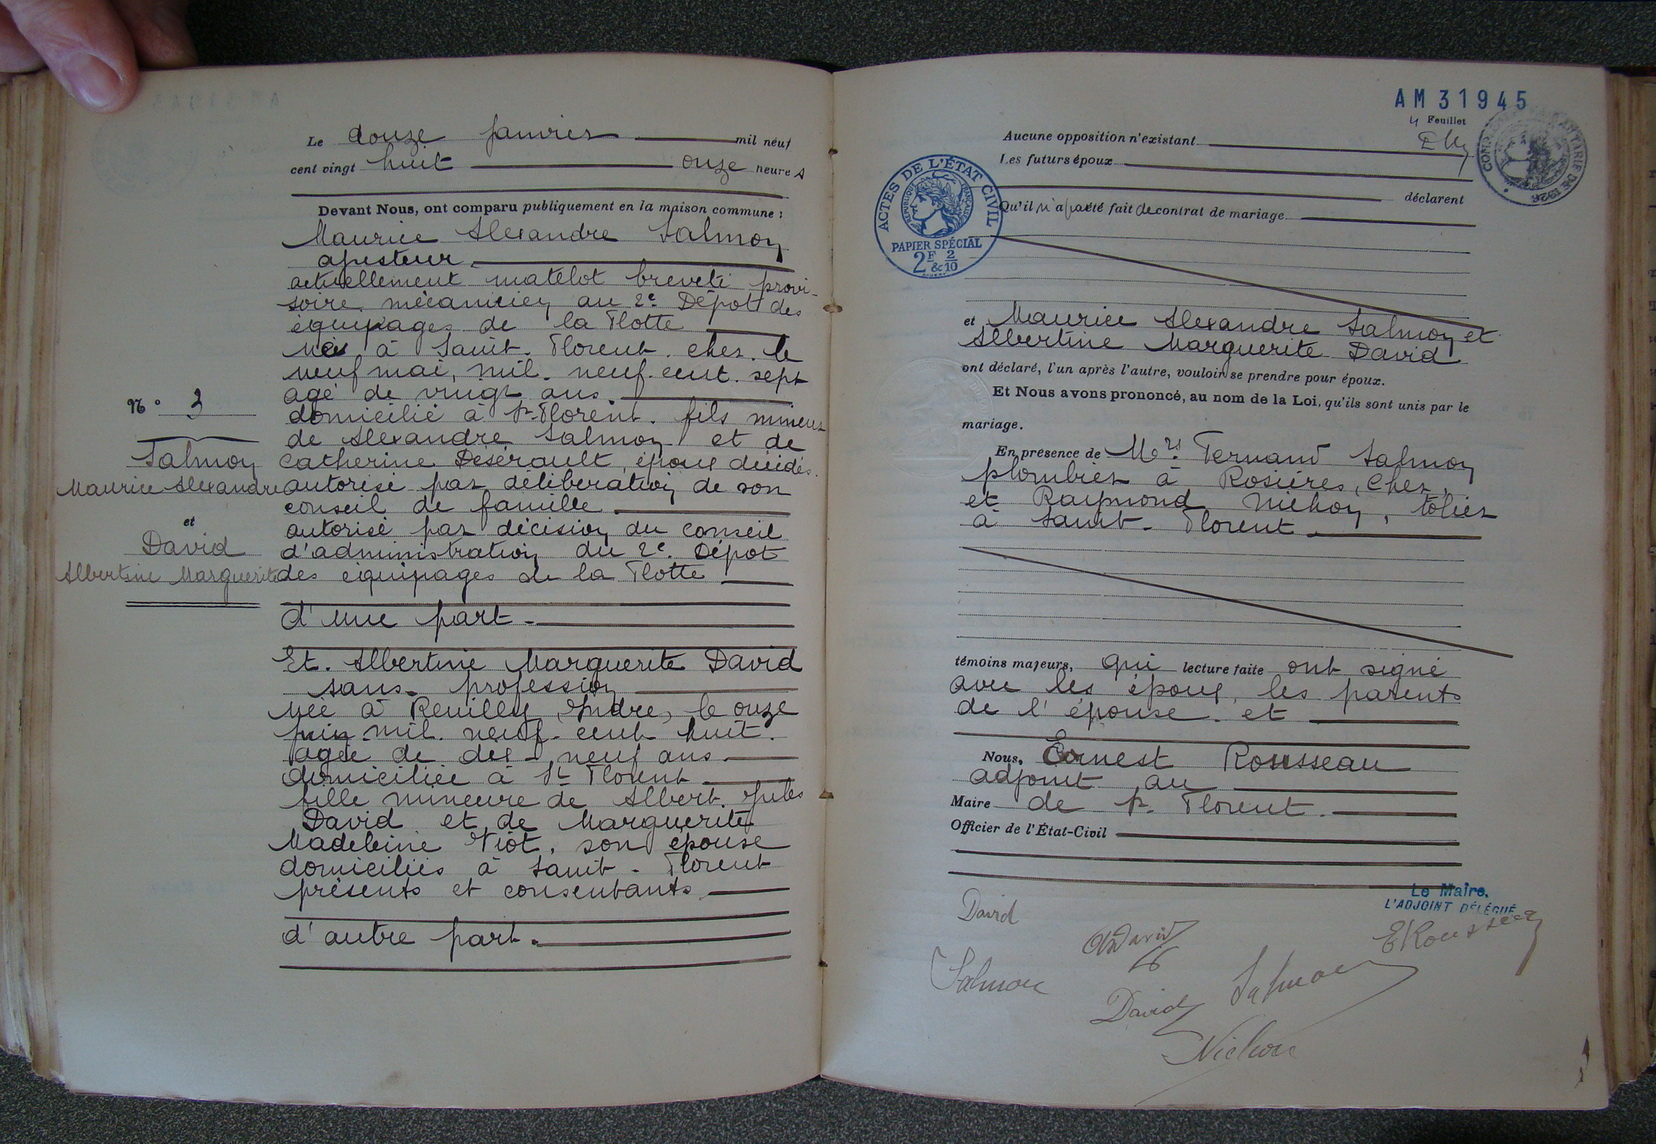 Le douze janvier mil neuf
cent vingt huit onze heures
Devant Nous, ont comparu publiquement en la maison commune :
Maurice Alexandre Salmon
ajusteur
actuellement matelot breveté provi-
soire mécanicien au 2e Dépot des
équipages de la Flotte
né à Saint-Florent. cher. le
neuf mai, mil. neuf. cent. sept
agé de vingt ans
N° 3
domicilié à St-Florent. fils mineur
de Alexandre Salmon et de
Salmon
Catherine Désérault, époux décédés.
Maurice Alexandre
autorisé par délibération de son
conseil de famille
et
autorisé par décision du conseil
David
d'administration du 2e. Dépot
Albertine Marguerite
des équipages de la Flotte
d'une part.
Et. Albertine Marguerite David
sans profession
née à Reuilly, Indre, le onze
juin mil. neuf. cent huit.
agée de dix-neuf ans
domiciliée à St Florent
fille mineure de Albert. Jules
David et de Marguerite
Madeleine Viot, son épouse
domiciliés à Saint-Florent
présents et consentants
d'autre part.
AM 31945
4 Feuillet
Aucune opposition n'existant
Les futurs époux
déclarent
Qu'il n'a pas été fait de contrat de mariage
ACTES DE L'ÉTAT CIVIL
PAPIER SPÉCIAL
2F 2/10
&
et Maurice Alexandre Salmon et
Albertine Marguerite David
ont déclaré, l'un après l'autre, vouloir se prendre pour époux.
Et Nous avons prononcé, au nom de la Loi, qu'ils sont unis par le
mariage.
En présence de Mrs Fernand Salmon
plombier à Rosières, Cher,
et Raymond Nichon, tôlier
à Saint-Florent
témoins majeurs, qui lecture faite ont signé
avec les époux, les parents
de l'épouse et
Nous, Ernest Rousseau
adjoint au
Maire de St Florent.
Officier de l'État-Civil
Le Maire,
L'ADJOINT DÉLÉGUÉ
David
David
ERousseau
Salmon
David
Salmon
Nichon